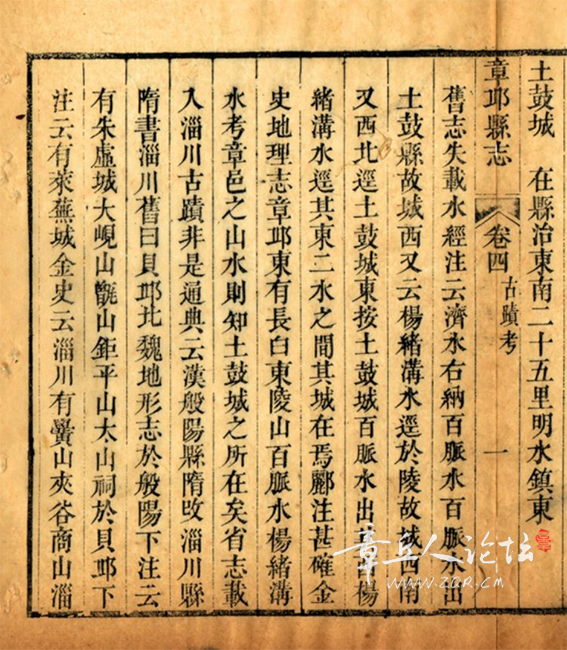 土鼓城 在縣治東南二十五里明水鎮東
章邱縣志 卷四 古蹟考 一
舊志失載水經注云濟水右納百脈水百脈水出
土鼓縣故城西又云楊緒溝水逕於陵故城西南
又西北逕土鼓城東按土鼓城百脈水出其西楊
緒溝水逕其東二水之間其城在焉酈注甚確金
史地理志章邱東有長白東陵山百脈水楊緒溝
水考章邑之山水則知土鼓城之所在矣省志載
入淄川古蹟非是通典云漢般陽縣隋改淄川縣
隋書淄川舊曰貝邱北魏地形志於般陽下注云
有朱虛城大峴山㠜山鉅平山太山祠於貝邱下
注云有萊蕪城金史云淄川有黌山夾谷商山淄
章丘人论坛
WWW.ZQR.CN